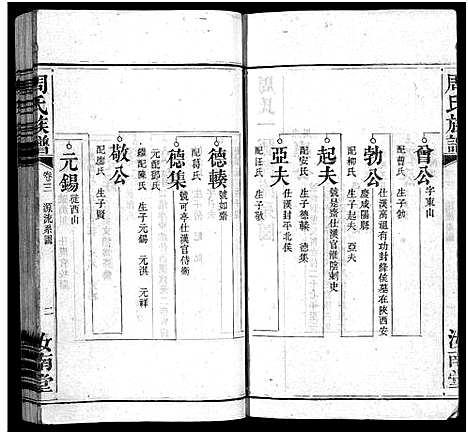 周氏族譜
曾公
字東山
配曹氏 生子勃
勃公
仕漢高祖有功封絳侯墓在陝西安
慶咸陽縣
配柳氏 生子起夫 亞夫
起夫
號是堂仕漢官淮陰刺史
配安氏 生子德轅 德集
亞夫
仕漢封平北侯
配汪氏 生子敬
德轅
號如齋
配葛氏
德集
號可亭仕漢官侍衛
元配邱氏 生子元錫 元淇 元祥
繼配陳氏
敬公
配廖氏 生子賢
元錫
從西山
周氏族譜
卷三
源流系圖
二
汝南堂
汝南堂